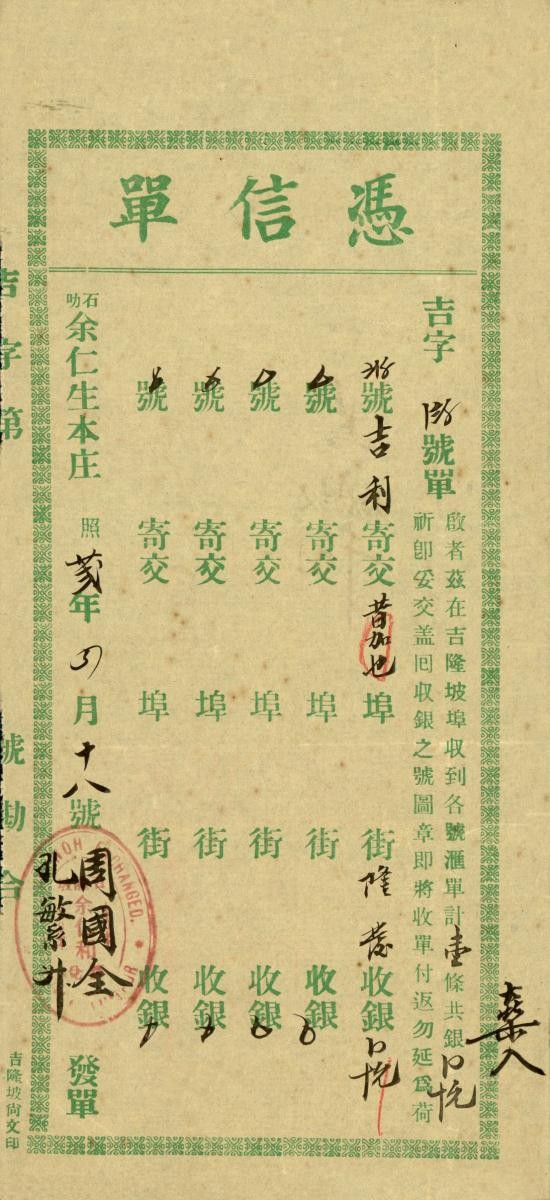 憑信單
吉字 號單
啟者茲在吉隆坡埠收到各號滙單計壹條共銀
祈卽妥交盖囘收銀之號圖章即將收單付返勿延爲荷
號吉利寄交昔加也埠 街隆發收銀
號 寄交 埠 街 收銀
號 寄交 埠 街 收銀
號 寄交 埠 街 收銀
號 寄交 埠 街 收銀
石叻余仁生本庄 照 年 月十八號 發單
周國全
孔敏
吉字第 號勘合
吉隆坡尙文印
EXCHANGED.